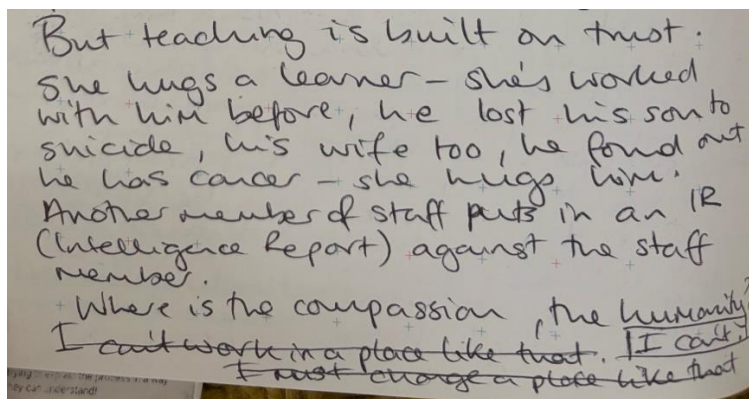 But teaching is built on trust.
She hugs a learner – she's worked
with him before, he lost his son to
suicide, his wife too, he found out
he has cancer – she hugs him.
Another member of staff puts in an IR
(Intelligence Report) against the staff
member.
Where is the compassion, the humanity?
I can't work in a place like that. I can't.
I must change a place like that
the process in a way
they can understand!